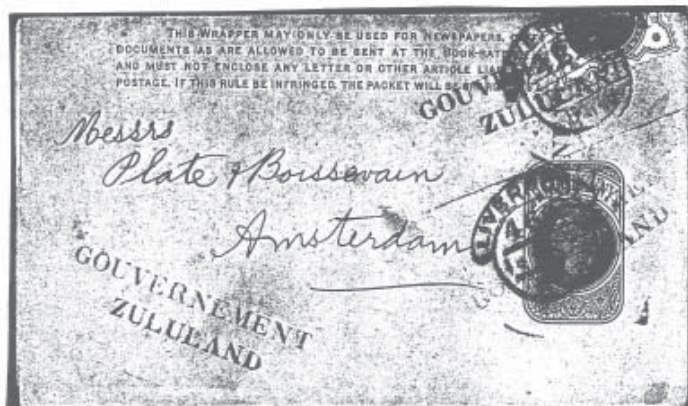 THIS WRAPPER MAY ONLY BE USED FOR NEWSPAPERS,
DOCUMENTS AS ARE ALLOWED TO BE SENT AT THE BOOK-RATE
AND MUST NOT ENCLOSE ANY LETTER OR OTHER ARTICLE
POSTAGE. IF THIS RULE BE INFRINGED, THE PACKET WILL BE
GOUVERNE
ZULULAND
Messrs
Plate & Boissevain
Amsterdam
LIVERPOOL
GOUVERNEMENT
ZULULAND